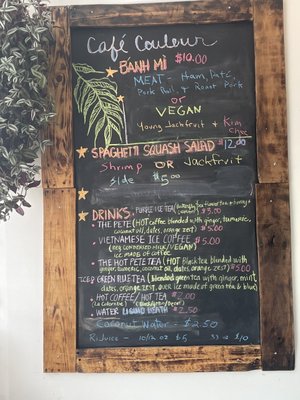 Café Couleur
BANH MI $10.00
MEAT - Ham, Paté,
Pork Roll, & Roast Pork
or
VEGAN
Young Jackfruit & Kim
Chee
SPAGHETTI SQUASH SALAD $12.00
Shrimp OR Jackfruit
side $5.00
DRINKS. PURPLE ICE TEA $5.00
THE PETE (HOT coffee blended with ginger, turmeric,
coconut oil, dates, orange zest) $5.00
VIETNAMESE ICE COFFEE $5.00
ice made of coffee
THE HOT PETE TEA (HOT Black tea blended with
ginger, turmeric, coconut oil, dates, orange zest) $5.00
ICED GREEN BLUE TEA (blended green tea with ginger, mint
dates, orange zest, over ice made of green tea &
HOT COFFEE / HOT TEA $2.00
WATER LIQUID DEATH $2.50
Coconut Water - $2.50
Juice - 10/12 oz $5 $10